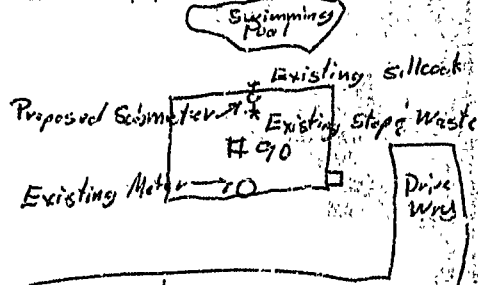 Swimming
Pool
Existing sillcock
Proposed Submeter
Existing Stop & Waste
# 90
Existing Meter
Drive
Way